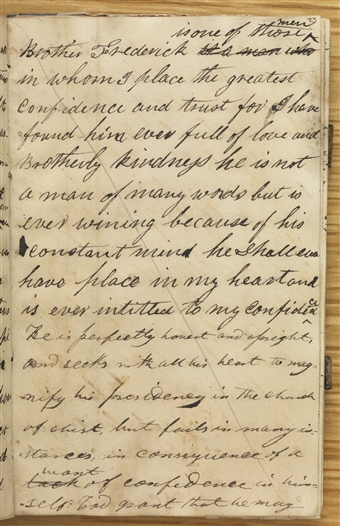 is one of those men
Brother Frederick is a man who
in whom I place the greatest
confidence and trust for I have
found him ever full of love and
Brotherly kindness he is not
a man of many words but is
ever wining because of his
constant mind he shall ever
have place in my heart and
is ever intitled to my confiden
He is perfectly honest and upright,
and seeks with all his heart to mag-
nify his presidency in the church
of christ, but fails in many in-
-stances, in consequence of a
want
lack of confidence in him-
-self: God grant that he may